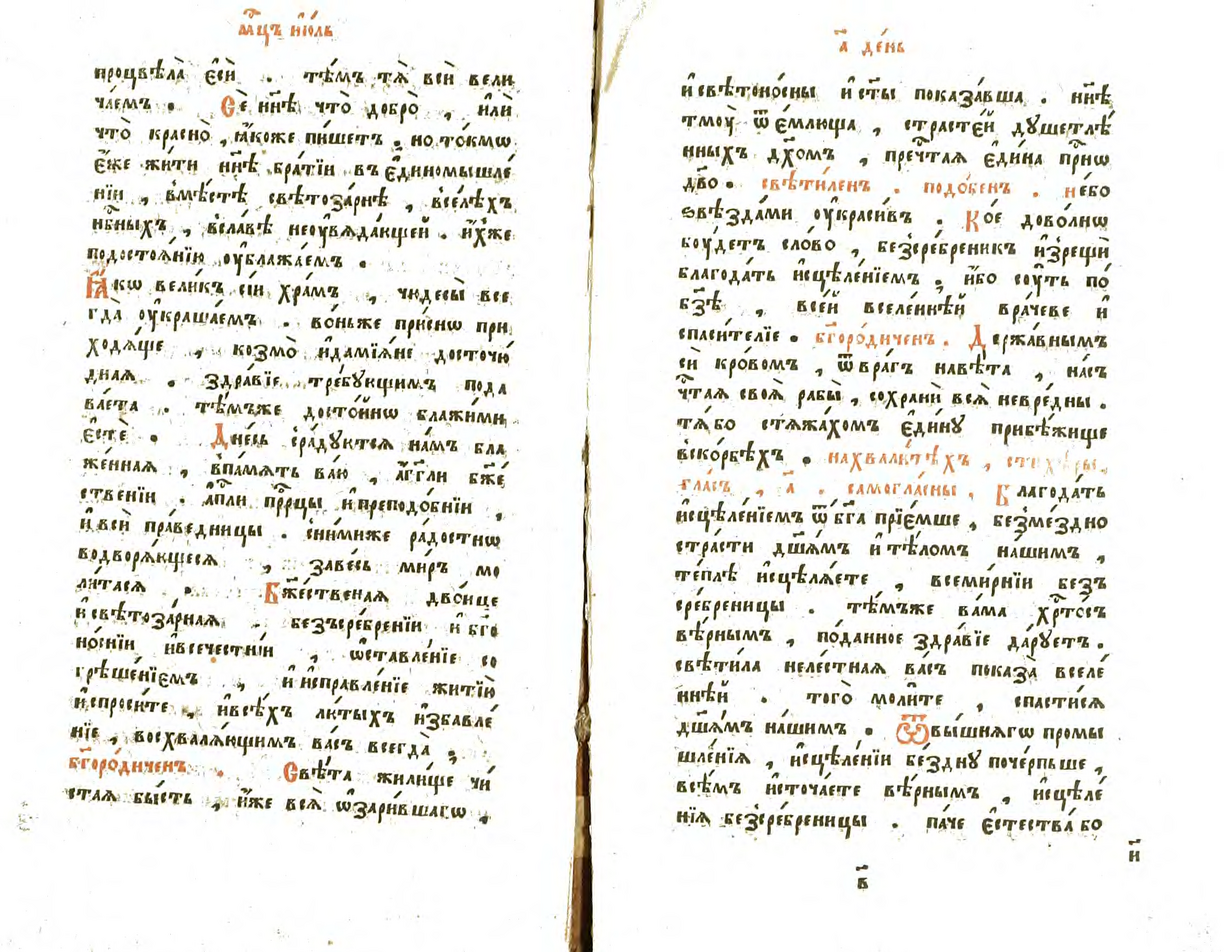 мⷭ҇цъ и҆ю́ль
процвѣла̀ є҆сѝ . тѣ́мъ тѧ̀ всѝ вели
ча́емъ . Сѐ нн҃ѣ что̀ добро̀ , и҆лѝ
что̀ красно̀ , ꙗ҆́коже пи́шетъ , но то́кмѡ
є҆́же жи́ти нн҃ѣ бра́тїи въ є҆диномышле́
нїи , вмѣ́стѣ свѣтоза́рнѣ , вселѣ́хъ
нб҃ныхъ , всла́вѣ неоувѧда́ющей . и҆́хже
подостоѧ́нїю оу҆блажа́емъ .
Ꙗ҆́кѡ вели́къ сі́и хра́мъ , чюдесы̀ все
гда̀ оу҆краша́емъ . во́ньже при́снѡ при
ходѧ́ще , козмо̀ и҆дамїѧ́не досточю́
днаѧ . здра́вїе тре́бующимъ пода
ва́ета . тѣ́мъже досто́йнѡ блажи́ми
є҆стѐ . Дне́сь сра́дуютсѧ на́мъ бла
же́ннаѧ , впа́мѧть ва́ю , а҆́гг҃ли бж҃е́
ственїи . а҆пⷭ҇ли прⷪ҇рцы и҆преподо́бнїи ,
и҆ всѝ пра́ведницы . сни́миже ра́достнѡ
водворѧ́ющесѧ , заве́сь ми́ръ мо
ли́тасѧ . Бж҃е́ственаѧ дво́ице
и҆ свѣтоза́рнаѧ . безъсре́бренїи и҆ бг҃о
но́снїи и҆всечестні́и , ѡ҆ставле́нїе со
грѣше́нїемъ , и҆ и҆справле́нїе житїю̀
и҆спроси́те , и҆всѣ́хъ лю́тыхъ и҆збавле́
нїе , восхвалѧ́ющимъ ва́съ всегда̀ .
бг҃оро́диченъ . Свѣ́та жили́ще чи́
стаѧ бы́сть , и҆́же всѧ̀ ѡ҆зари́вшагѡ ,
а҃ де́нь
и҆ свѣтоно́сны и҆ ст҃ы показа́вша . нн҃ѣ
тмоу̀ ѿ є҆́млюща , страсте́й душетлѣ́
нныхъ дх҃омъ , пречⷭ҇таѧ є҆ди́на прⷭ҇нѡ
дв҃о . свѣти́ленъ . подо́бенъ . не́бо
ѕвѣзда́ми оу҆краси́въ . Ко́е дово́лнѡ
боу́детъ сло́во , безсре́бреникъ и҆зрещѝ
благода́ть и҆сцѣле́нїемъ . и҆́бо соу́ть по́
бзѣ , все́й вселе́ннѣй вра́чеве и҆
спаси́телїе . бг҃оро́диченъ . Держа́внымъ
сѝ кро́вомъ , ѿ вра́гъ навѣ́та , на́съ
чⷭ҇таѧ своѧ̀ рабы̀ , сохранѝ всѧ̀ невре́дны .
тѧ́ бо стѧжа́хомъ є҆ди́ну прибѣ́жище
вско́рбѣхъ . на хвали́тѣхъ , стихе́ры .
гла́съ , а҃ . самогла́сны . Благода́ть
и҆сцѣле́нїемъ ѿ бг҃а прїе́мше , безме́здно
стра́сти дш҃а́мъ и҆ тѣ́ломъ на́шимъ ,
те́плѣ и҆сцѣлѧ́ете , всеми́рнїи безъ
сре́бреницы . тѣ́мъже ва́ма хрⷭ҇то́съ
вѣ́рнымъ , по́данное здра́вїе да́руетъ .
свѣти́ла неле́стнаѧ ва́съ показа̀ вселе́
ннѣй . того̀ моли́те , спасти́сѧ
дш҃а́мъ на́шимъ . Ѿвы́шнѧгѡ промы
шле́нїѧ , и҆сцѣле́нїи бе́здну поче́рпьше ,
всѣ́мъ и҆сточа́ете вѣ́рнымъ , и҆сцѣле́
нїѧ безсре́бреницы . па́че є҆стества̀ бо
и҃
в҃